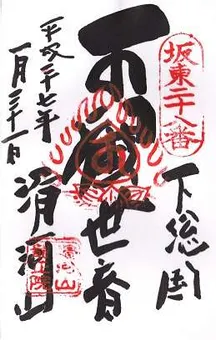 坂東二十八番
下総国
観世音
平成二十七年
一月三十一日
滑河山